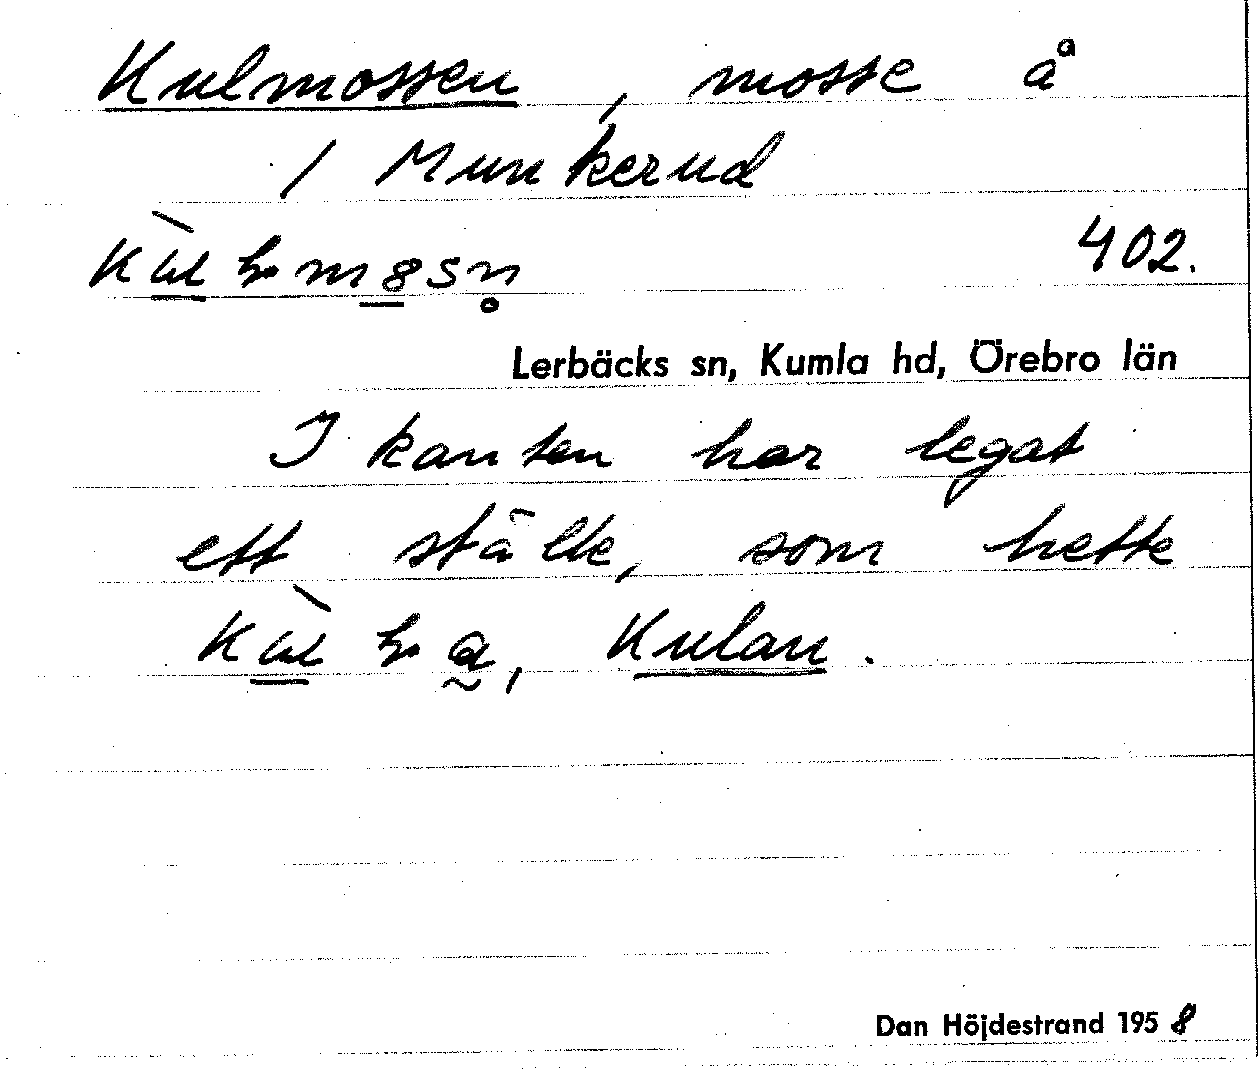 Kulmossen, mosse å
/ Munkerud
402.
Lerbäcks sn, Kumla hd, Örebro län
I kanten har legat
ett ställe, som hette
Kulan.
Dan Höjdestrand 1958